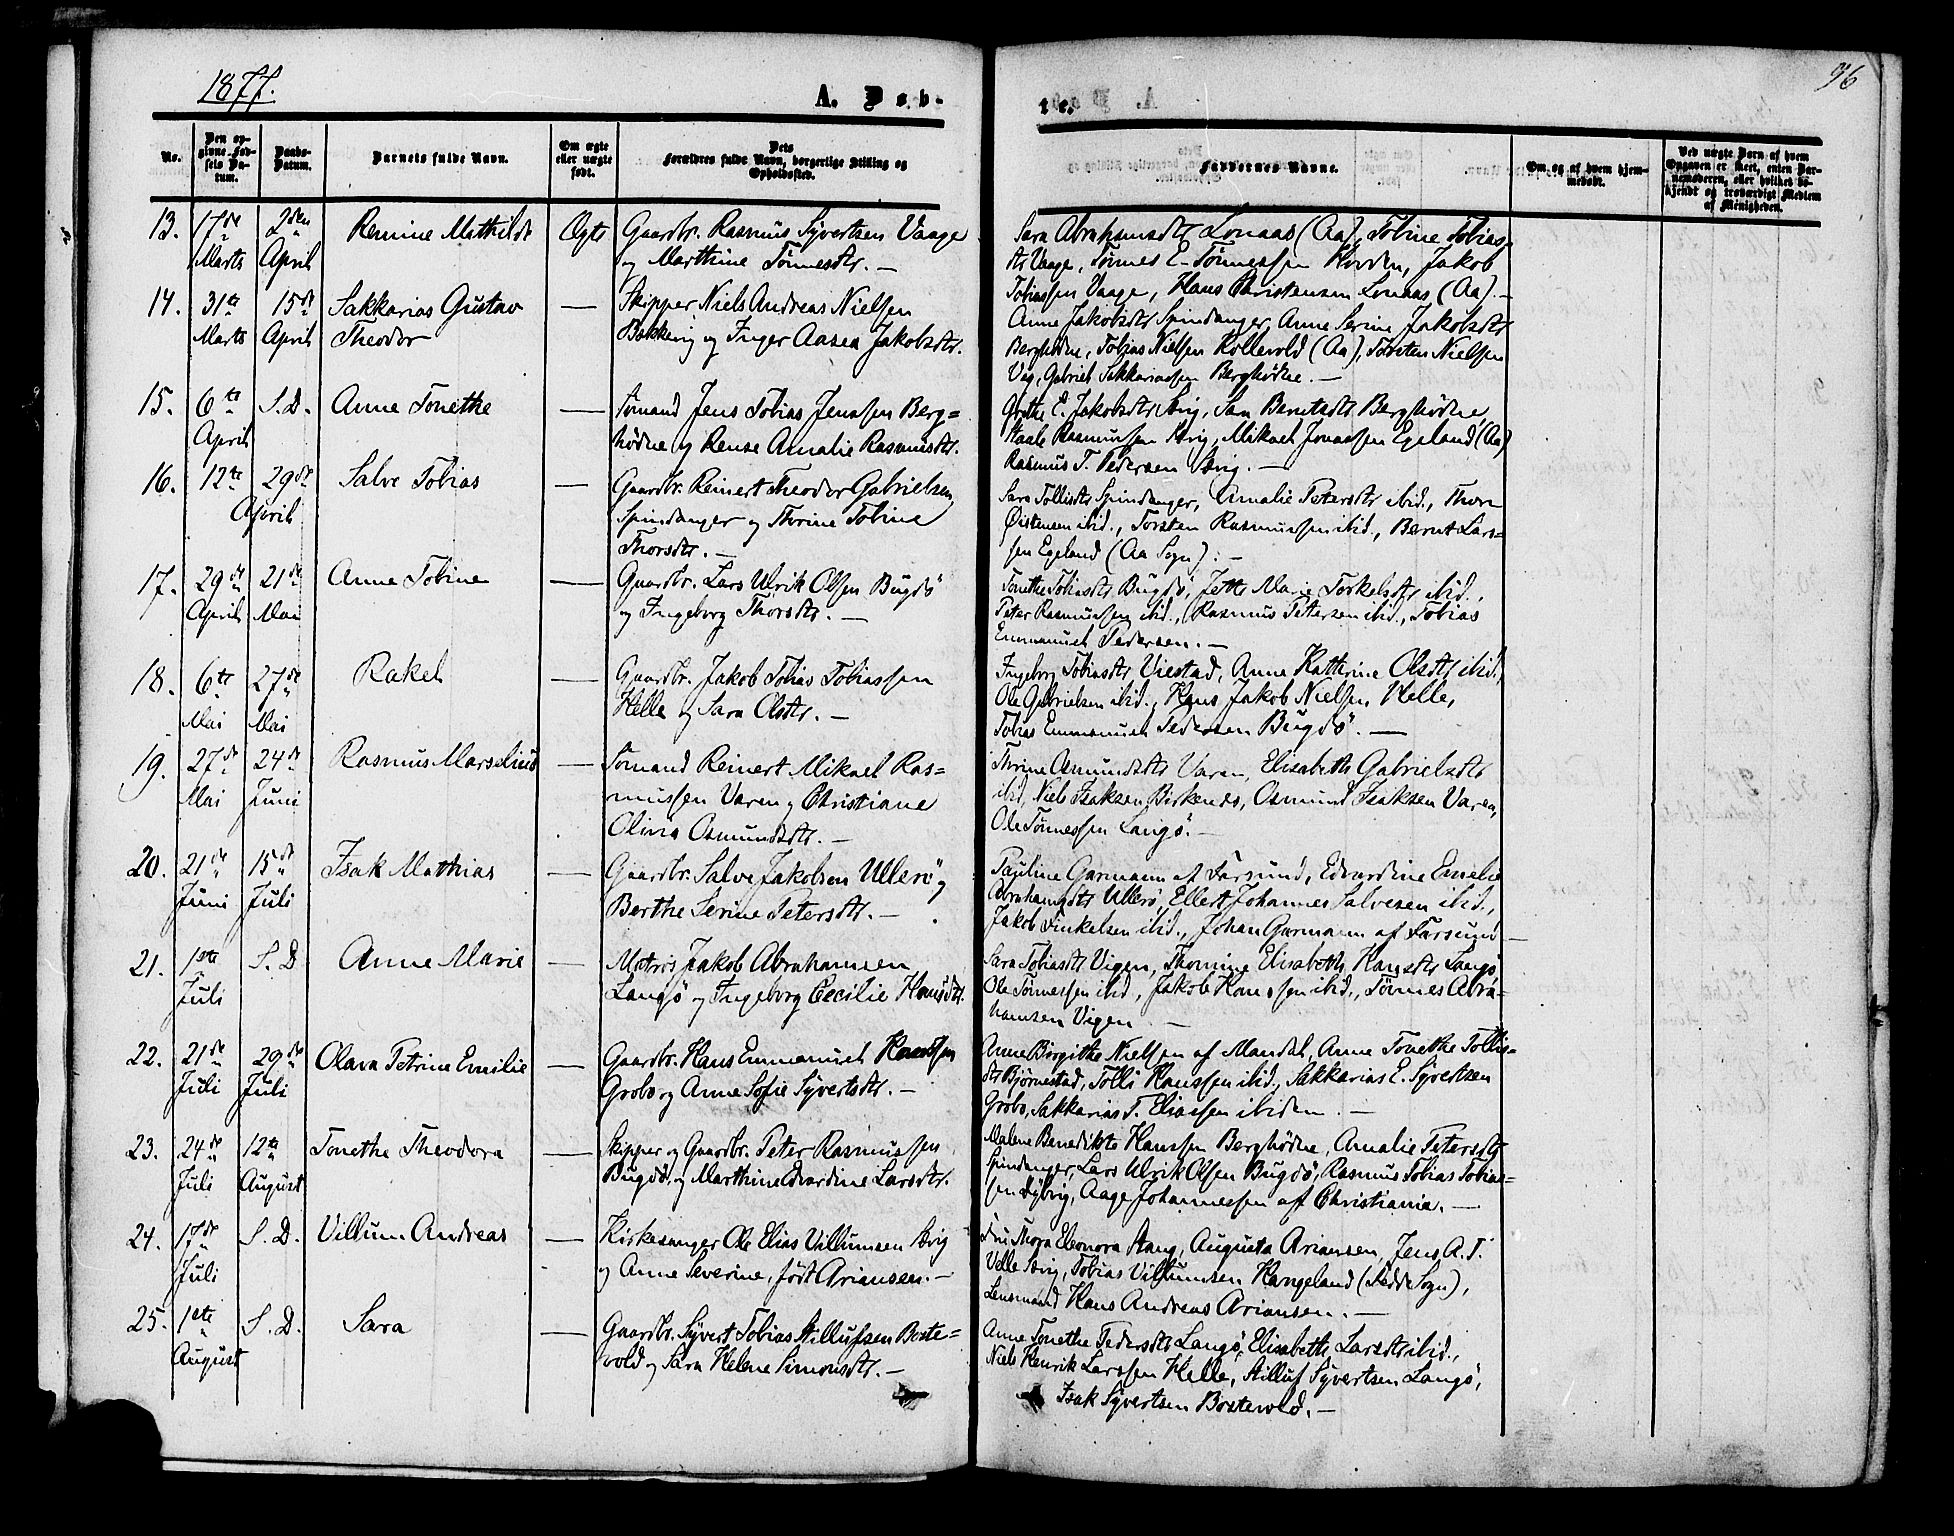 1877.
A. Døb-
No.
Den opgivne Fødsels Datum.
Daabs-Datum.
Barnets fulde Navn.
Om ægte eller uægte født.
Dets Forældres fulde Navn, borgerlige Stilling og Opholdssted.
13. 17de Marts 2den April Remine Mathilde Ægte Gaardbr. Rasmus Syvertsen Vaage
og Marthine Tønnesdtr. —
14. 31te Marts 15de April Sakkarias Gustav — Skipper Niels Andreas Nielsen
Theodor og Inger Aasea Jakobsdtr.
15. 6te April S.D. Anne Tonethe — Sømand Jens Tobias Jenssen Berg=
hødne og Amalie Rasmusdtr.
16. 12te 29de April Salve Tobias — Gaardbr. Reinert Theodor Gabrielsen
Spindanger og Thrine Tobine
Thorsdtr. —
17. 29de April 21de Mai Anne Tobine — Gaardbr. Lars Ulrik Olsen Bugdö
og Ingeborg Thorsdtr. —
18. 6te Mai 27de Mai Rakel — Gaardbr. Jakob Tobias Tobiassen
Helle og Sara Olsdtr. —
19. 27de Mai 24de Juni Rasmus Marselius — Sømand Reinert Mikael Ras=
mussen Varen og Christiane
Olivia Osmundsdtr. —
20. 21de Juni 15de Juli Isak Mathias — Gaardbr. Salve Jakobsen Ullerö og
Berthe Serine Petersdtr. —
21. 1ste Juli S.D. Anne Marie — Matros Jakob Abrahamsen
Langö og Ingeborg Cecilie Hansdtr.
22. 21de Juli 29de Juli Olava Petrine Emilie — Gaardbr. Hans Emmanuel Hanssen
Grobo og Anne Sofie Syvertsdtr. —
23. 24de Juli 12te August Tonethe Theodora — Skipper og Gaardbr. Peter Rasmussen
Bugdö, og Marthine Edvardine Larsdtr.
24. 17de Juli S.D. Villum Andreas — Kirkesanger Ole Elias Villumsen
og Anne Severine, født Ariansen. —
25. 1ste August S.D. Sara — Gaardbr. Syvert Tobias Stillufsen Boste=
vold og Sara Helene Simonsdtr. —
96
te.
Faddernes Navne.
Om og af hvem hjemmedøbt.
Ved uægte Børn af hvem Opgaven er skeet, enten Barnemoderen, eller hvilket bekjendt og troværdigt Medlem af Menigheden.
Sara Abrahamsdtr Lonaas (Aa), Tobine Tobias=
dtr Vaage, Tønnes E. Tønnessen Jakob
Tobiassen Vaage, Hans Christensen Lonaas (Aa). —
Anne Jakobsdtr Spindanger, Anne Serine Jakobsdtr
Berghödne, Tobias Nielsen Kollevold (Aa), Torsten Nielsen
Gabriel Sakkariassen Berghödne. —
Grethe E. Jakobsdtr Sara Berntsdtr Berghödne,
Staale Rasmussen Mikael Jonassen Egeland (Aa)
Rasmus T. Pedersen —
Sara Tollisdtr Spindanger, Amalie Petersdtr ibid., Thor
Øistensen ibid., Torsten Rasmussen ibid., Bernt Lars=
sen Egeland (Aa Sogn). —
Tonethe Tobiasdtr Bugdö, Jette Marie Torkelsdtr ibid.,
Peter Rasmussen ibid., Rasmus Petersen ibid., Tobias
Emmanuel Pedersen. —
Ingeborg Tobiasdtr Viestad, Anne Kathrine Olsdtr ibid.,
Ole Gabrielsen ibid., Hans Jakob Nielsen, Helle,
Tobias Emmanuel Pedersen Bugdö. —
Thrine Osmundsdtr Varen, Elisabeth Gabrielsdtr
ibid, Niels Isaksen Birkenes, Osmund Isaksen Varen,
Ole Tønnessen Langö. —
Pauline Garmann af Farsund, Edvardine Emelie
Abrahamsdtr Ullerö, Ellert Johannes Salvesen ibid.,
Jakob Finkelsen ibid., Johan Garmann af Farsund —
Sara Tobiasdtr Vigen, Thomine Elisabeth Hansdtr Langö
Ole Tønnessen ibid, Jakob Hanssen ibid., Tønnes Abra=
hamsen Vigen —
Anne Birgithe Nielsen af Mandal, Anne Tonethe Tollis=
dtr Bjørnestad, Tolli Hanssen ibid., Sakkarias E. Syvertsen
Grobo, Sakkarias T. Eliassen ibiden. —
Malene Benedikte Hanssen Berghödne, Amalie Petersdtr
Spindanger, Lars Ulrik Olsen Bugdö, Rasmus Tobias Tobias=
sen Aage Johannessen af Christiania. —
Fru Thora Eleonora Stang, Augusta Ariansen, Jens A. T.
Velle Tobias Villumsen Hangeland (Fedde Sogn),
Lensmand Hans Andreas Ariansen. —
Anne Tonethe Pedersdtr Langö, Elisabeth Larsdtr ibid.,
Niels Henrik Larssen Helle, Stilluf Syvertsen Langö,
Isak Syvertsen Bostevold. —